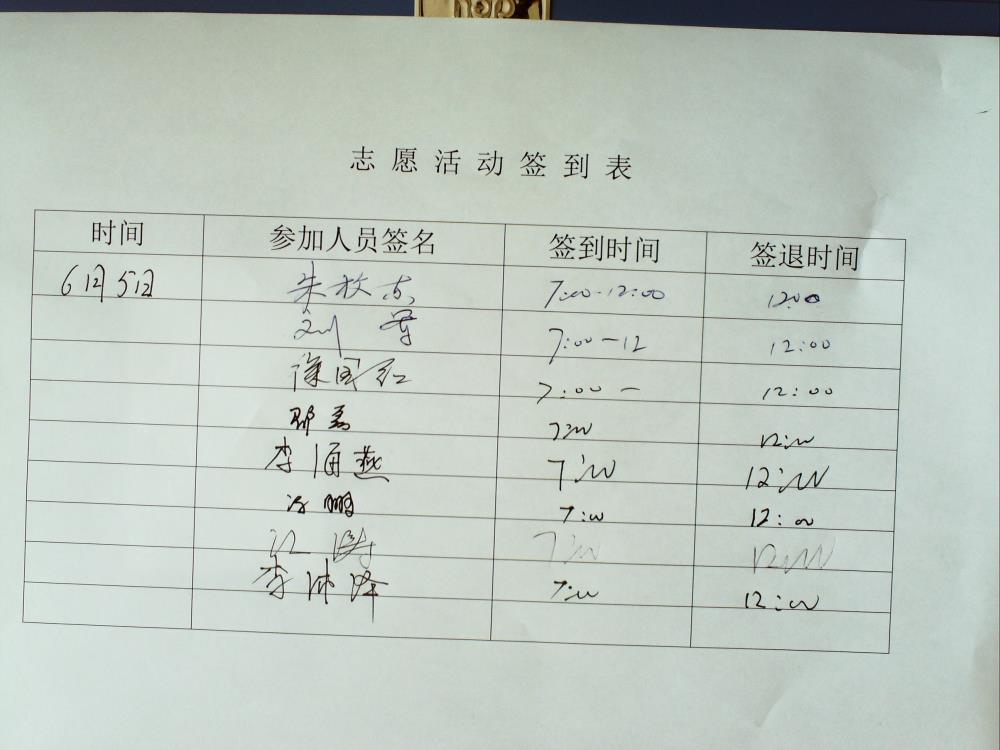 志愿活动签到表
时间 参加人员签名 签到时间 签退时间
6月5日 朱牧志 7:00-12:00 12:00
刘 7:00-12 12:00
徐国红 7:00- 12:00
邵荔 7:00 12:00
李涌燕 7:00 12:00
冷鹏 7:00 12:00
江 7:00 12:00
李沛锋 7:00 12:00